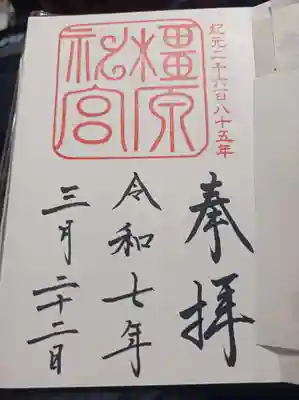 紀元二千六百八十五年
奉拝
橿原神宮
令和七年
三月二十二日